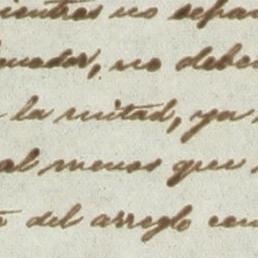 mientras no sepa
no deben
la mitad, ya
al menos que
del arreglo con